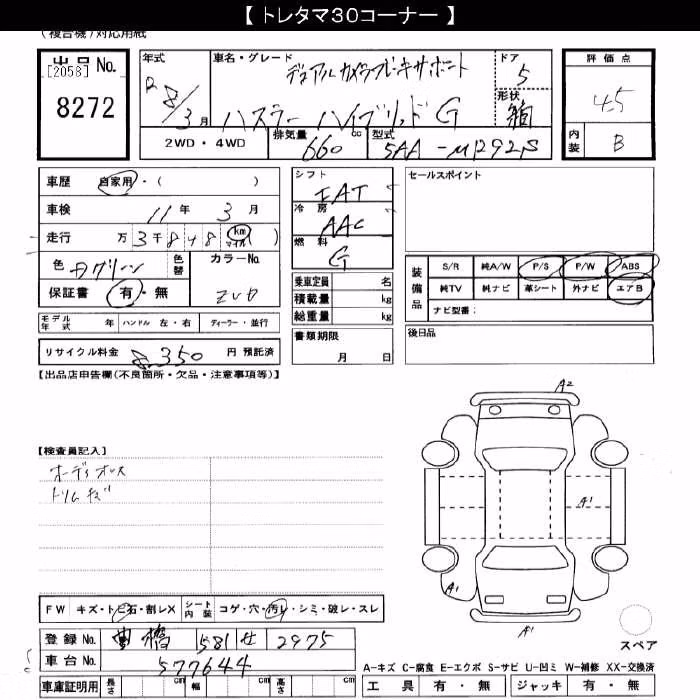 【 トレタマ30コーナー 】
(複合機)対応用紙
出品No.
[2058]
8272
年式
R 8/3月
車名・グレード
デュアルカメラブレーキサポート
ハスラー ハイブリッド G
ドア
5
形状
箱
評価点
4.5
内装
B
2WD・4WD
排気量
660 cc
型式
5AA-MR92S
車歴 自家用・( )
車検 11年 3月
走行 万 3千 8 4 8 km マイル ( )
色
色替
カラーNo.
ZVD
保証書 有・無
モデル年式 年 ハンドル 左・右 ディーラー・並行
リサイクル料金 8,350 円 預託済
シフト
IAT
冷房
AAC
燃料
G
乗車定員 名
積載量 kg
総重量 kg
書類期限
月 日
セールスポイント
装備品
S/R 純A/W P/S P/W ABS
純TV 純ナビ 革シート 外ナビ エアB
ナビ型番:
後日品
【出品店申告欄(不良箇所・欠品・注意事項等)】
A2
【検査員記入】
オーディオレス
トリムキズ
A1
A1
FW キズ・トビ石・割レX シート内装 コゲ・穴・汚レ・シミ・破レ・スレ
登録No. 豊橋 581 せ 2975
車台No. 577644
スペア
A-キズ C-腐食 E-エクボ S-サビ U-凹ミ W-補修 XX-交換済
車庫証明用 長さ cm 幅 cm 高さ cm
工具 有・無 ジャッキ 有・無